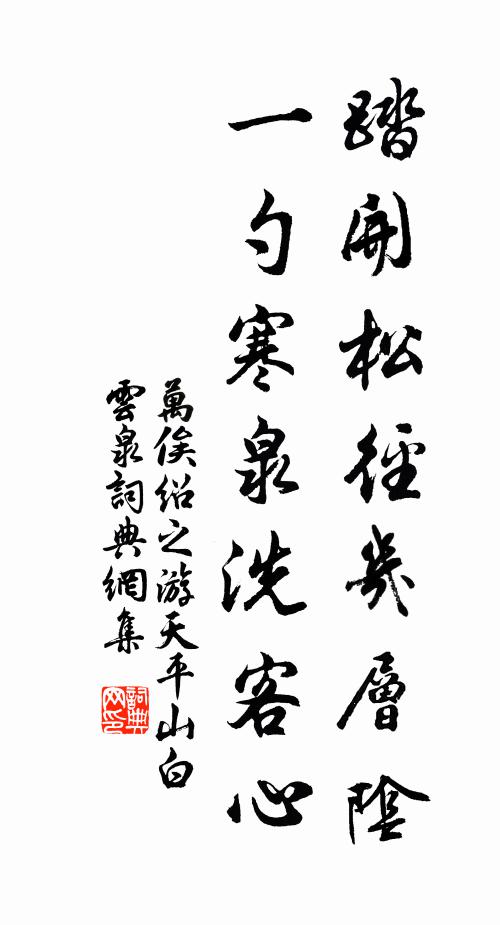 踏開松徑幾層陰
一勺寒泉洗客心
萬俟紹之游天平山白
雲泉詞典網集
詞典网印